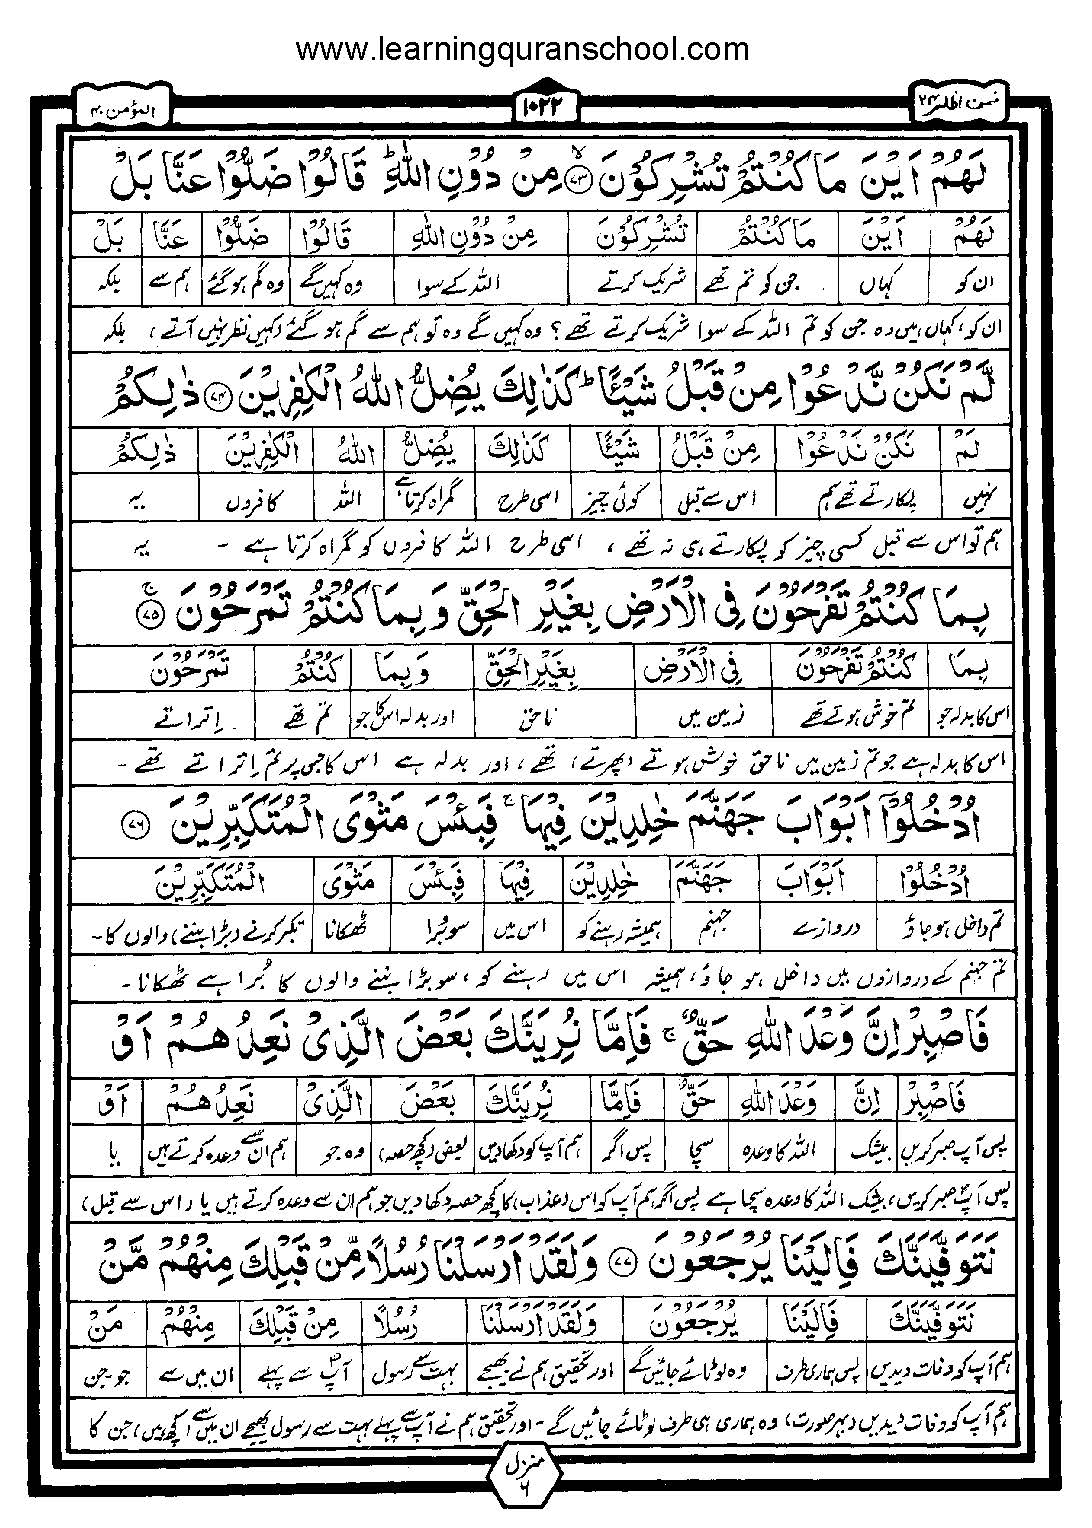 www.learningquranschool.com
فمن اظلم ٢٤ ١٠٢٢ المؤمن ٤٠
لَهُمْ اَيْنَ مَا كُنْتُمْ تُشْرِكُوْنَ ۙ﴿۷۳﴾ مِنْ دُوْنِ اللّٰهِ ؕ قَالُوْا ضَلُّوْا عَنَّا بَلْ
لَهُمْ اَيْنَ مَا كُنْتُمْ تُشْرِكُوْنَ مِنْ دُوْنِ اللّٰهِ قَالُوْا ضَلُّوْا عَنَّا بَلْ
ان کو کہاں جن کو تم تھے شریک کرتے اللہ کے سوا وہ کہیں گے وہ گم ہوگئے ہم سے بلکہ
ان کو، کہاں ہیں وہ جن کو تم اللہ کے سوا شریک کرتے تھے؟ وہ کہیں گے وہ تو ہم سے گم ہو گئے (کہیں نظر نہیں آتے)، بلکہ
لَّمْ نَكُنْ نَّدْعُوْا مِنْ قَبْلُ شَيْـًٔا ؕ كَذٰلِكَ يُضِلُّ اللّٰهُ الْكٰفِرِيْنَ ﴿۷۴﴾ ذٰلِكُمْ
لَمْ نَكُنْ نَدْعُوْا مِنْ قَبْلُ شَيْـًٔا كَذٰلِكَ يُضِلُّ اللّٰهُ الْكٰفِرِيْنَ ذٰلِكُمْ
نہیں پکارتے تھے ہم اس سے قبل کوئی چیز اسی طرح گمراہ کرتا ہے اللہ کافروں یہ
ہم تو اس سے قبل کسی چیز کو پکارتے ہی نہ تھے، اسی طرح اللہ کافروں کو گمراہ کرتا ہے - یہ
بِمَا كُنْتُمْ تَفْرَحُوْنَ فِى الْاَرْضِ بِغَيْرِ الْحَقِّ وَ بِمَا كُنْتُمْ تَمْرَحُوْنَ ۚ﴿۷۵﴾
بِمَا كُنْتُمْ تَفْرَحُوْنَ فِى الْاَرْضِ بِغَيْرِ الْحَقِّ وَ بِمَا كُنْتُمْ تَمْرَحُوْنَ
اس کا بدلہ جو تم خوش ہوتے تھے زمین میں ناحق اور بدلہ اس کا جو تم تھے اتراتے
اس کا بدلہ ہے جو تم زمین میں ناحق خوش ہوتے (پھرتے) تھے، اور بدلہ ہے اس کا جس پر تم اِتراتے تھے۔
اُدْخُلُوْۤا اَبْوَابَ جَهَنَّمَ خٰلِدِيْنَ فِيْهَا ۚ فَبِئْسَ مَثْوَى الْمُتَكَبِّرِيْنَ ﴿۷۶﴾
اُدْخُلُوْا اَبْوَابَ جَهَنَّمَ خٰلِدِيْنَ فِيْهَا فَبِئْسَ مَثْوَى الْمُتَكَبِّرِيْنَ
تم داخل ہو جاؤ دروازے جہنم ہمیشہ رہنے کو اس میں سو بُرا ٹھکانا تکبر کرنے (بڑا بننے) والوں کا۔
تم جہنم کے دروازوں میں داخل ہو جاؤ، ہمیشہ اس میں رہنے کو، سو بڑا بننے والوں کا بُرا ہے ٹھکانا۔
فَاصْبِرْ اِنَّ وَعْدَ اللّٰهِ حَقٌّ ۚ فَاِمَّا نُرِيَنَّكَ بَعْضَ الَّذِىْ نَعِدُهُمْ اَوْ
فَاصْبِرْ اِنَّ وَعْدَ اللّٰهِ حَقٌّ فَاِمَّا نُرِيَنَّكَ بَعْضَ الَّذِىْ نَعِدُهُمْ اَوْ
پس آپ صبر کریں بیشک اللہ کا وعدہ سچا پس اگر ہم آپ کو دکھا دیں بعض (کچھ حصہ) وہ جو ہم ان سے وعدہ کرتے ہیں یا
پس آپ صبر کریں، بیشک اللہ کا وعدہ سچا ہے پس اگر ہم آپ کو اس (عذاب) کا کچھ حصہ دکھا دیں جو ہم ان سے وعدہ کرتے ہیں یا (اس سے قبل)
نَتَوَفَّيَنَّكَ فَاِلَيْنَا يُرْجَعُوْنَ ﴿۷۷﴾ وَلَقَدْ اَرْسَلْنَا رُسُلًا مِّنْ قَبْلِكَ مِنْهُمْ مَّنْ
نَتَوَفَّيَنَّكَ فَاِلَيْنَا يُرْجَعُوْنَ وَلَقَدْ اَرْسَلْنَا رُسُلًا مِنْ قَبْلِكَ مِنْهُمْ مَنْ
ہم آپ کو وفات دیدیں پس ہماری طرف وہ لوٹائے جائیں گے اور تحقیق ہم نے بھیجے بہت سے رسول آپ سے پہلے ان میں سے جو جن
ہم آپ کو وفات دیدیں (بہر صورت) وہ ہماری ہی طرف لوٹائے جائیں گے - اور تحقیق ہم نے آپ سے پہلے بہت سے رسول بھیجے ان میں سے (کچھ ہیں) جن کا
منزل ٦